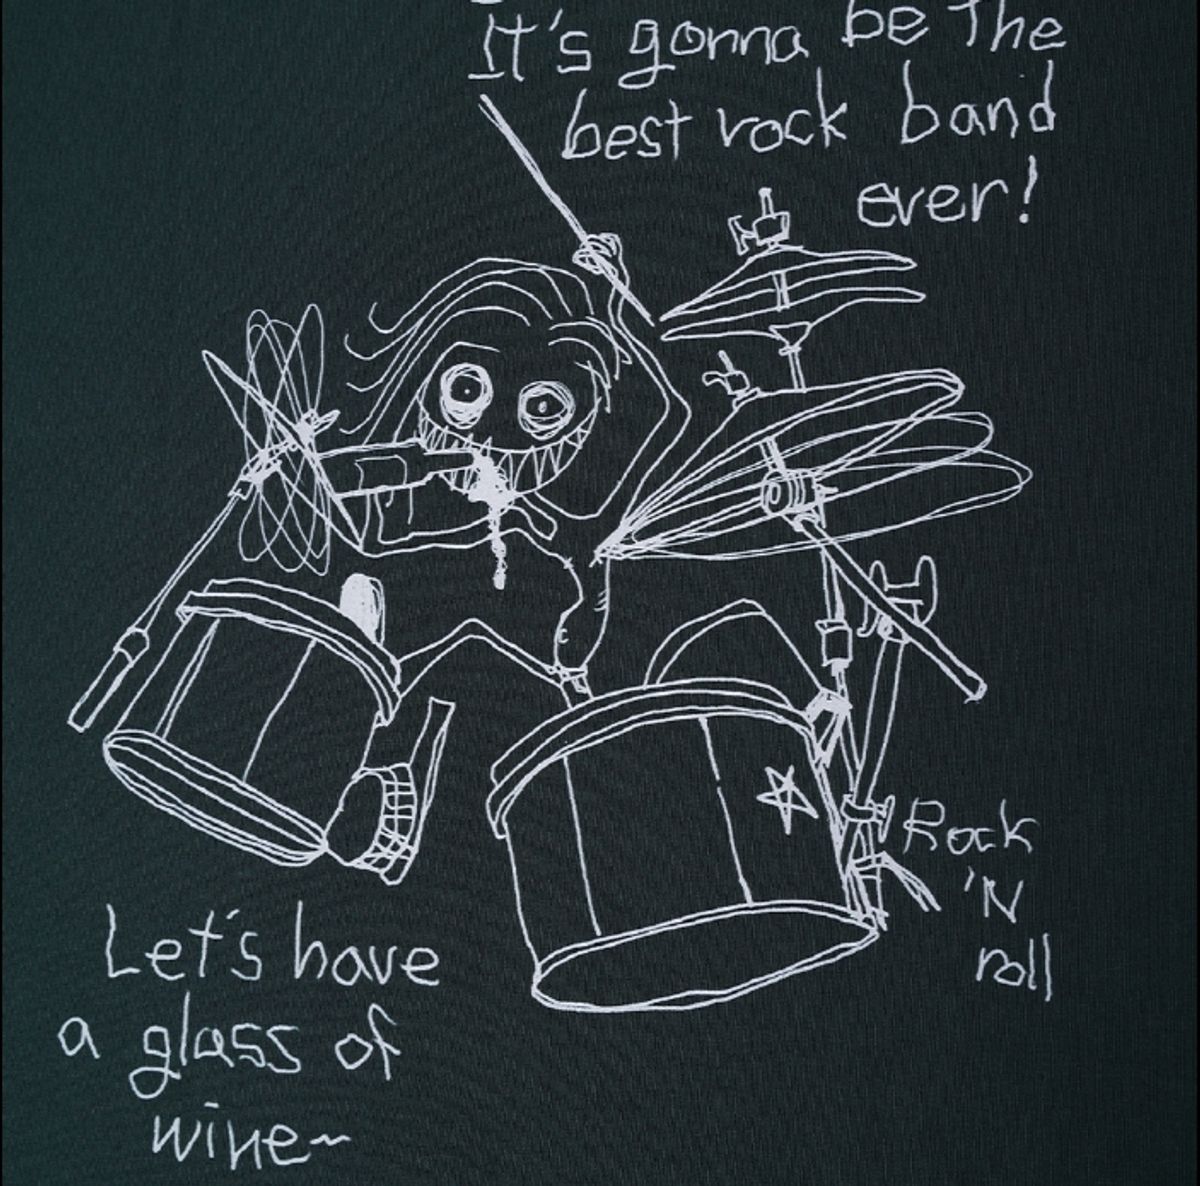 It's gonna be The
best rock band
ever!
Rock
'N
roll
Let's have
a glass of
wine~